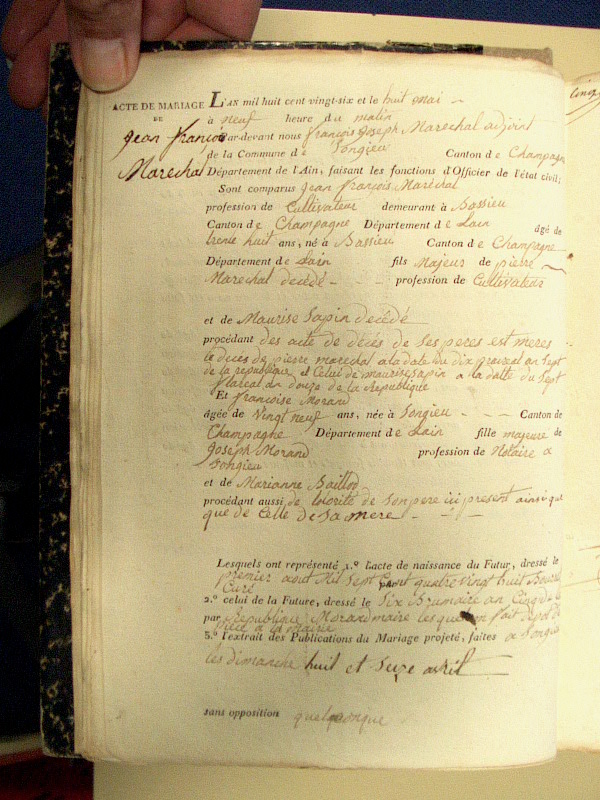 ACTE DE MARIAGE
DE
Jean françois
Marechal
L'AN mil huit cent vingt-six et le huit mai
à neuf heure du matin
Par-devant nous françois Joseph Marechal adjoint
de la Commune de Songieu Canton de Champagne
Département de l'Ain, faisant les fonctions d'Officier de l'état civil;
Sont comparus Jean françois Maréchal
profession de Cultivateur demeurant à Bassieu
Canton de Champagne Département de Lain âgé de
trente huit ans, né à Bassieu Canton de Champagne
Département de Lain fils Majeur de pierre
Marechal decédé profession de Cultivateur
et de Maurise Sapin decédé
procédant des acte de décès de ses peres est meres
le décès de pierre marechal a la date du dix an sept
de la republique et Celui de maurise Sapin a la datte du sept
flareal an douze de la Republique
Et françoise Morand
âgée de Vingt neuf ans, née à Songieu Canton de
Champagne Département de Lain fille majeure de
Joseph Morand profession de Notaire a
Songieu
et de Marianne Baillod
procédant aussi de lotorité de son pere ici present ainsi que
que de Celle de sa mere
Lesquels ont représenté 1.º l'acte de naissance du Futur, dressé le
premier aout Mil Sept Cent quatre vingt huit par
Curé
2.º celui de la Future, dressé le Six Brumaire an Cinq de la
par république Morand maire les quel on fait depot
a la mairie
3.º l'extrait des Publications du Mariage projeté, faites a Songieu
les dimanche huit et Seize avril
sans opposition quelquonque
Cinq